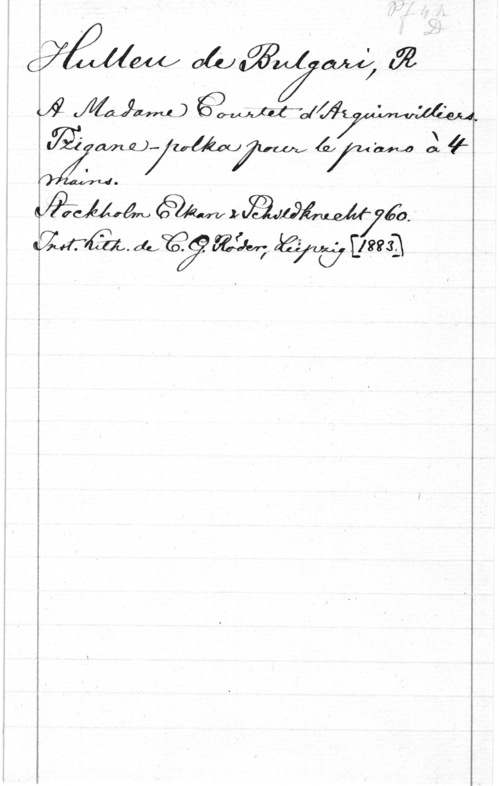 Pf 4 h
D
Hulleu de Bulgari, R
A Madame Courtet d'Arguinvilliers.
Tzigane-polka pour le piano à 4
mains.
Stockholm Elkan & Schildknecht 960.
Inst. Lith. de C. G. Röder, Leipzig [1883.]